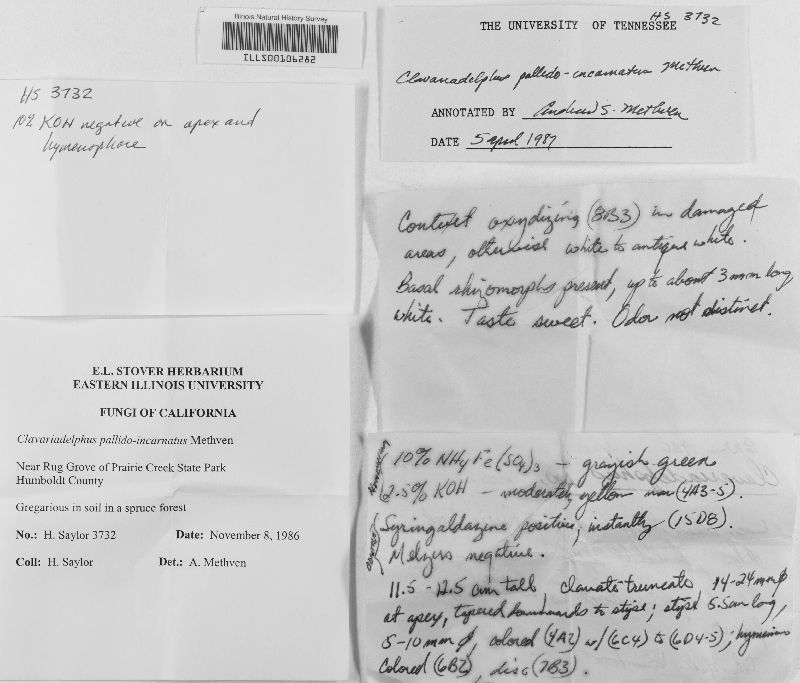 Illinois Natural History Survey
ILLS00106282
THE UNIVERSITY OF TENNESSEE
HS 3732
Clavariadelphus pallido-incarnatus Methven
ANNOTATED BY Andrew S. Methven
DATE 5 april 1987
HS 3732
10% KOH negative on apex and
hymenophore
Context oxydizing (8B3) in damaged
areas, otherwise white to antique white.
Basal rhizomorphs present, up to about 3 mm long,
white. Taste sweet. Odor not distinct.
E.L. STOVER HERBARIUM
EASTERN ILLINOIS UNIVERSITY
FUNGI OF CALIFORNIA
Clavariadelphus pallido-incarnatus Methven
Near Rug Grove of Prairie Creek State Park
Humboldt County
Gregarious in soil in a spruce forest
No.: H. Saylor 3732 Date: November 8, 1986
Coll: H. Saylor Det.: A. Methven
10% NH4 Fe(SO4)3 – grayish green
2.5% KOH – moderately yellow (4A3-5).
Syringaldazine positive, instantly (15D8).
Melzers negative.
11.5 - 12.5 cm tall, clavate truncate 14-24 mm ø
at apex, tapered downwards to stipe; stipe 5.5cm long,
5-10 mm ø, colored (4A2) w/ (6C4) to (6D4-5); hymenium
colored (6B2), disc (7B3).